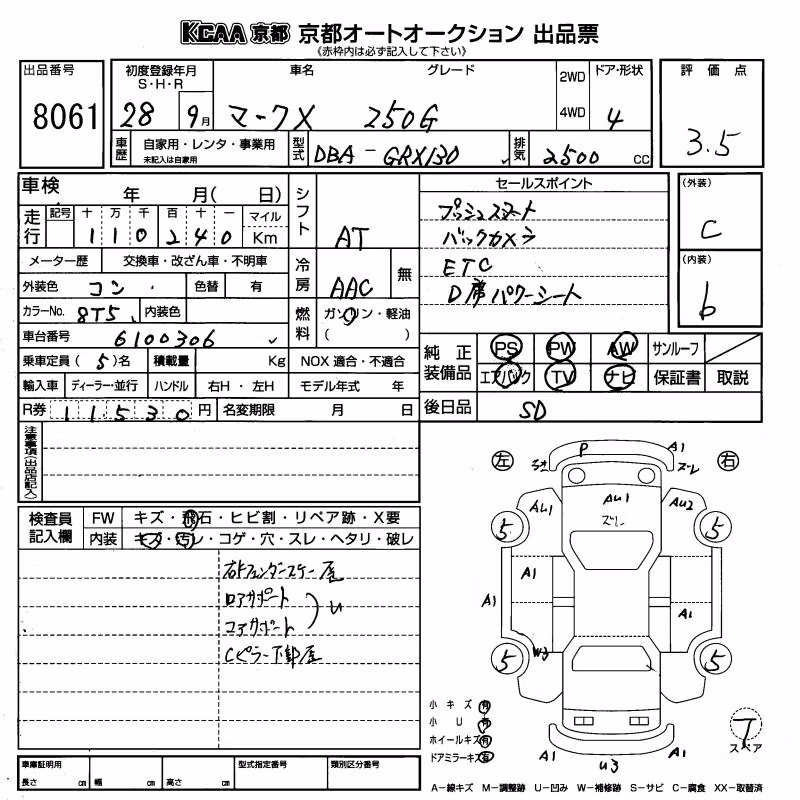 KCAA 京都 京都オートオークション 出品票
《赤枠内は必ず記入して下さい》
出品番号 8061
初度登録年月 S・H・R 28 9月
車名 マークX
グレード 250G
2WD 4WD
ドア・形状 4
評価点 3.5
車歴 自家用・レンタ・事業用 未記入は自家用
型式 DBA-GRX130
排気 2500 cc
車検 年 月( 日)
走行 記号 十 万 千 百 十 一 マイル Km
110240
シフト AT
メーター歴 交換車・改ざん車・不明車
冷房 AAC 無
外装色 コン 色替 有
カラーNo. 8T5 内装色
燃料 ガソリン・軽油 ( )
車台番号 6100306
乗車定員 (5)名 積載量 Kg NOX 適合・不適合
輸入車 ディーラー・並行 ハンドル 右H・左H モデル年式 年
R券 11530円 名変期限 月 日
セールスポイント
プッシュスタート
バックカメラ
ETC
D席パワーシート
(外装) C
(内装) b
純正装備品 PS PW AW サンルーフ
エアバック TV ナビ 保証書 取説
後日品 SD
注意事項(出品店記入)
検査員記入欄 FW キズ・飛石・ヒビ割・リペア跡・X要
内装 キズ・汚レ・コゲ・穴・スレ・ヘタリ・破レ
右Fフェンダーステー凹
ロアサポート
コアサポート U
Cピラー下部凹
左 右
P A1 ズレ
AU1 ズレ
AL1 AU2
5 5
A1
A1 A1
W3
5 5
A1 U3 A1
小キズ 有
小U 有
ホイールキズ 有
ドアミラーキズ 有
T スペア
A-線キズ M-調整跡 U-凹み W-補修跡 S-サビ C-腐食 XX-取替済
車庫証明用 長さ cm 幅 cm 高さ cm
型式指定番号 類別区分番号